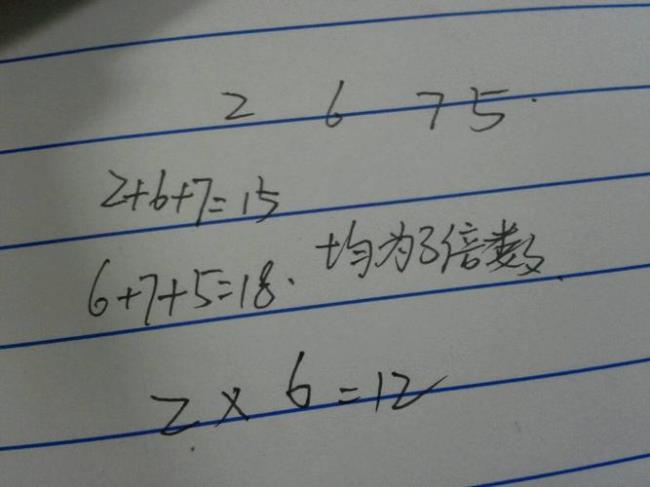 2 6 7 5.
2+6+7=15
6+7+5=18. 均为3倍数.
2×6=12